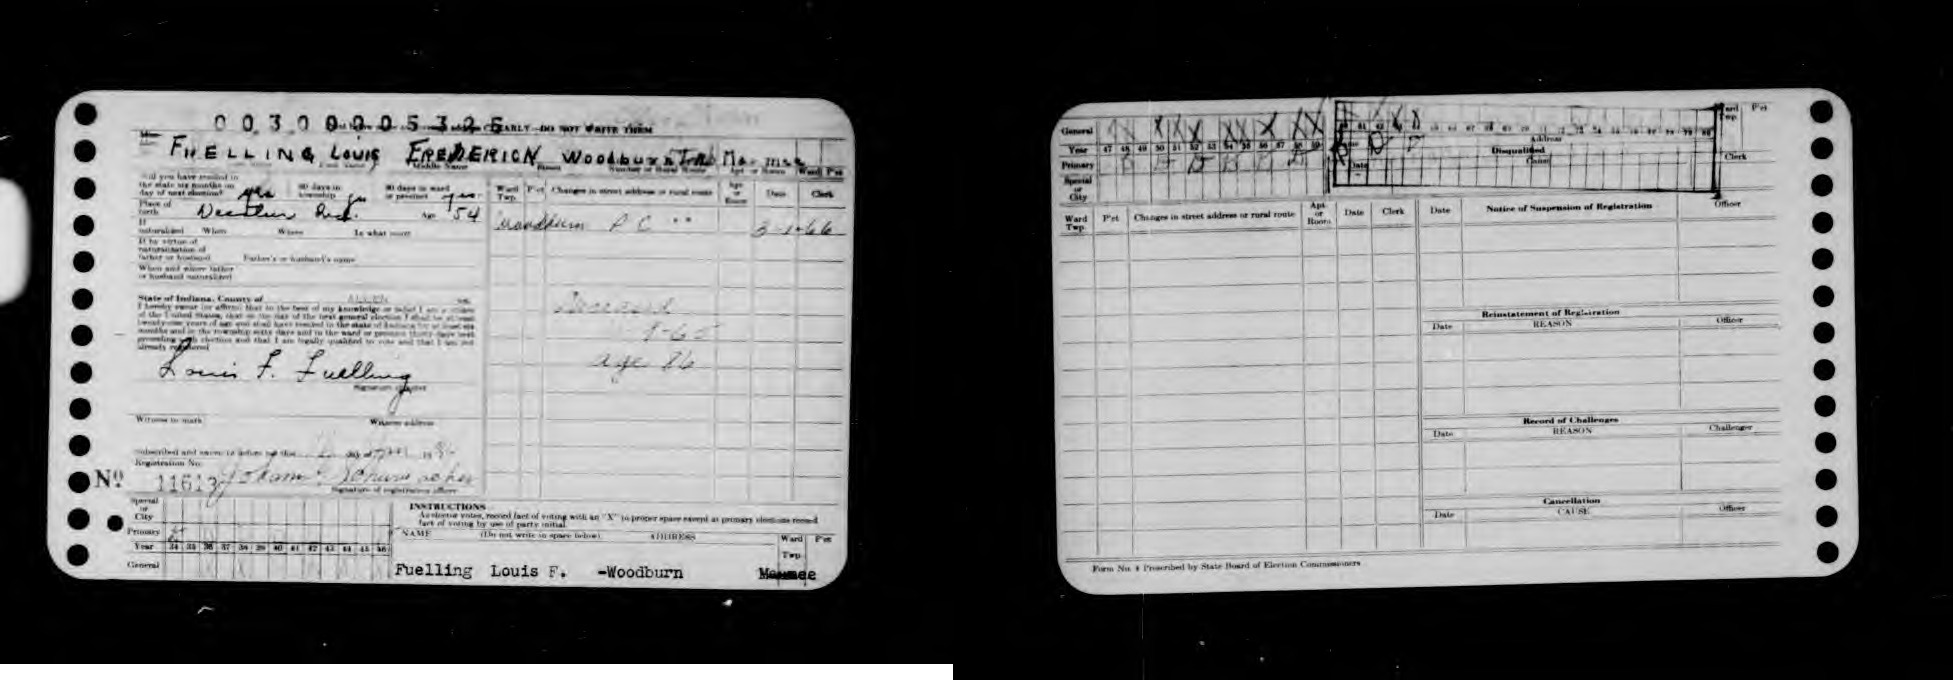 0030005326
CLEARLY—DO NOT WRITE THEM
FUELLING LOUIS FREDERICK Woodburn Ind
Middle Name Street Number or Rural Route Apt or Room Ward P'ct
Will you have resided in
the state six months on
day of next election? yes 60 days in
township yes 30 days in ward
or precinct yes
Place of
birth Decatur Ind. Age 54
If
naturalized When Where In what court
If by virtue of
naturalization of
father or husband Father's or husband's name
When and where father
or husband naturalized
State of Indiana, County of ALLEN ss:
I hereby swear (or affirm) that to the best of my knowledge or belief I am a citizen
of the United States, that on the day of the next general election I shall be at least
twenty-one years of age and shall have resided in the state of Indiana for at least six
months and in the township sixty days and in the ward or precinct thirty days next
preceding such election and that I am legally qualified to vote and that I am not
already registered
Louis F. Fuelling
Witness to mark Witness address
Subscribed and sworn to before me this day of 19
Registration No.
No 11613
Signature of registration officer
Ward
Twp. P'ct Changes in street address or rural route Apt
or
Room Date Clerk
Woodburn P C " " 3-1-66
Deceased
9-65
age 86
Special
or
City
Primary
Year 34 35 36 37 38 39 40 41 42 43 44 45 46
General
INSTRUCTIONS
As elector votes, record fact of voting with an "X" in proper space except at primary elections record
fact of voting by use of party initial.
NAME (Do not write in space below) ADDRESS Ward P'ct
Twp.
Fuelling Louis F. -Woodburn Maumee
General X X X X X X X X
Year 47 48 49 50 51 52 53 54 55 56 57 58 59
Primary
Special
or
City
Address
Disqualified
Date Cause
Ward
Twp. P'ct
Clerk
Ward
Twp. P'ct Changes in street address or rural route Apt
or
Room Date Clerk
Date Notice of Suspension of Registration Officer
Reinstatement of Registration
Date REASON Officer
Record of Challenges
Date REASON Challenger
Cancellation
Date CAUSE Officer
Form No. 4 Prescribed by State Board of Election Commissioners